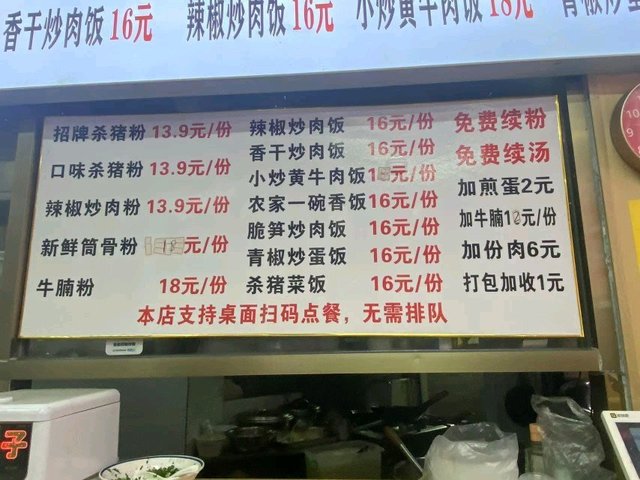 香干炒肉饭16元 辣椒炒肉饭16元 小炒黄牛肉饭18元 青椒炒
招牌杀猪粉 13.9元/份
口味杀猪粉 13.9元/份
辣椒炒肉粉 13.9元/份
新鲜筒骨粉 元/份
牛腩粉 18元/份
辣椒炒肉饭 16元/份
香干炒肉饭 16元/份
小炒黄牛肉饭 元/份
农家一碗香饭 16元/份
脆笋炒肉饭 16元/份
青椒炒蛋饭 16元/份
杀猪菜饭 16元/份
免费续粉
免费续汤
加煎蛋2元
加牛腩 元/份
加份肉6元
打包加收1元
本店支持桌面扫码点餐，无需排队
子
10
9
8